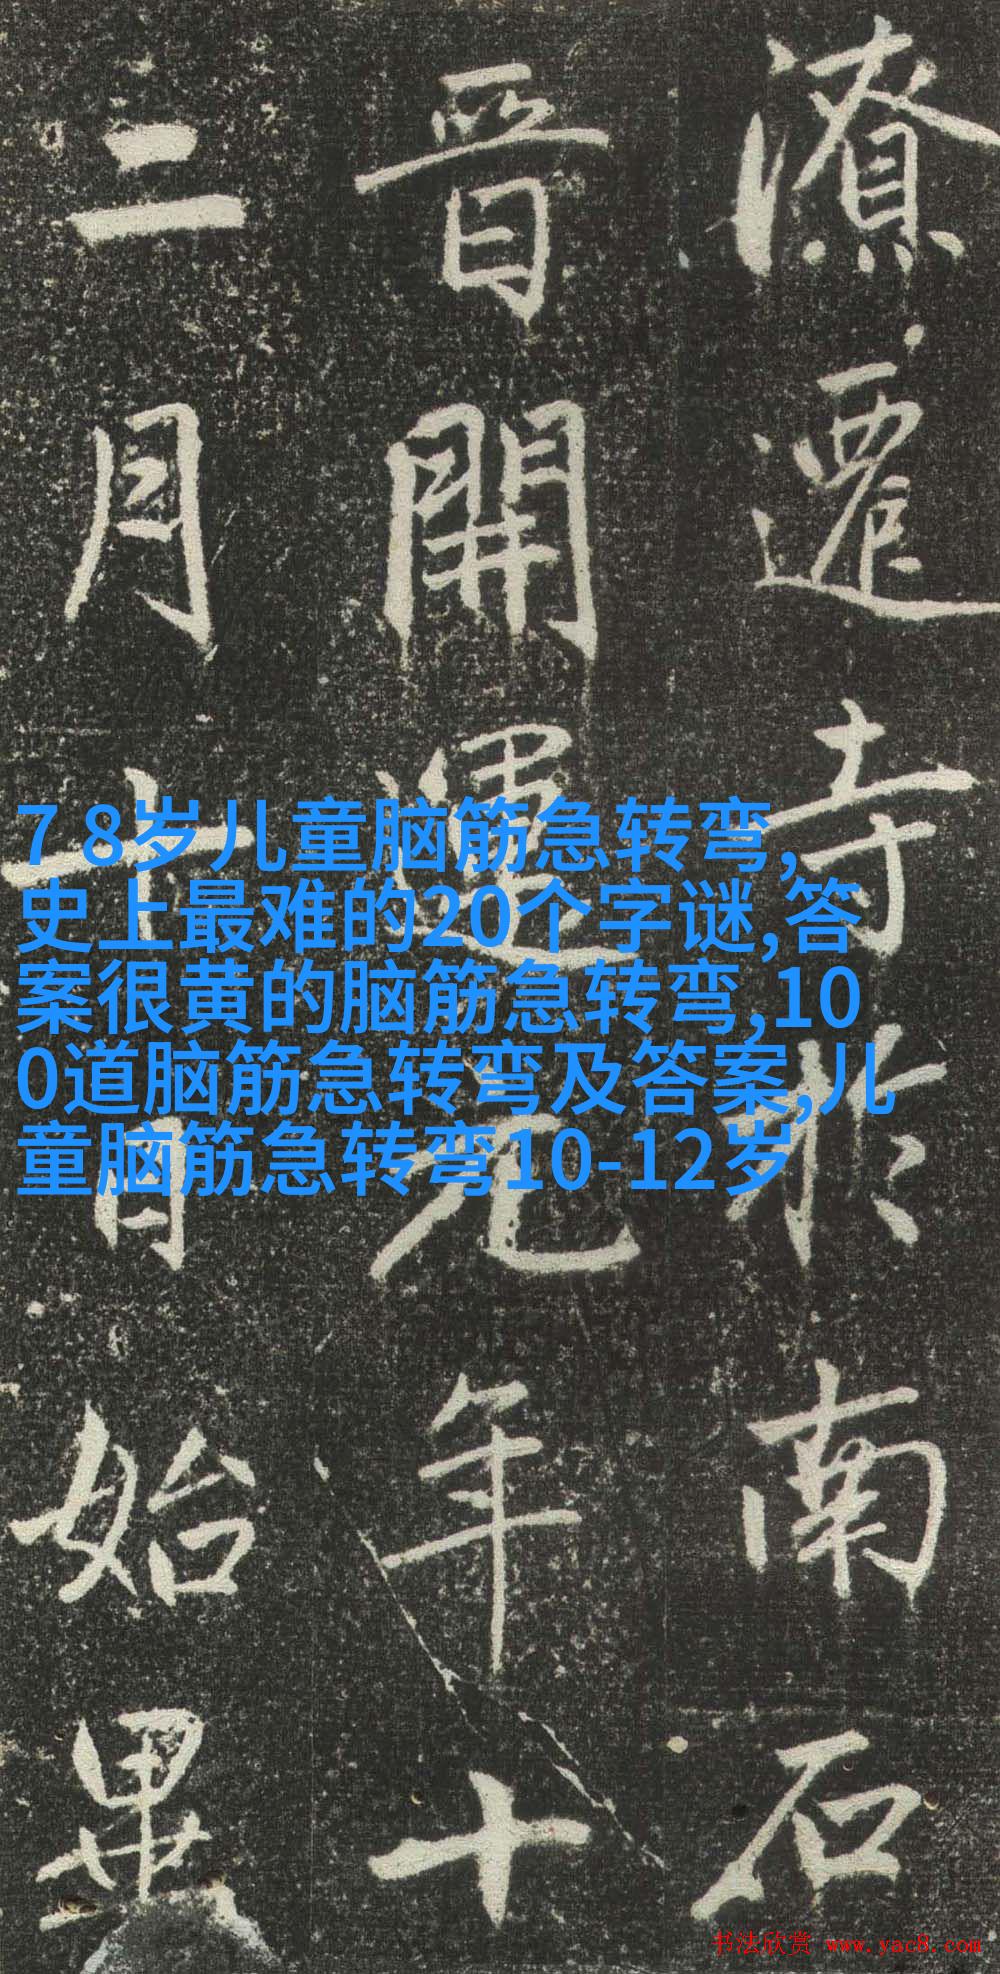 潦遷寺於南石
晉開運元年十
二月十日始畢
7 8岁儿童脑筋急转弯,
史上最难的20个字谜,答
案很黄的脑筋急转弯,10
0道脑筋急转弯及答案,儿
童脑筋急转弯10-12岁
书法欣赏 www.yac8.com